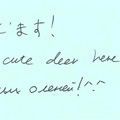 ざます!
cute deer here
оленей!^^